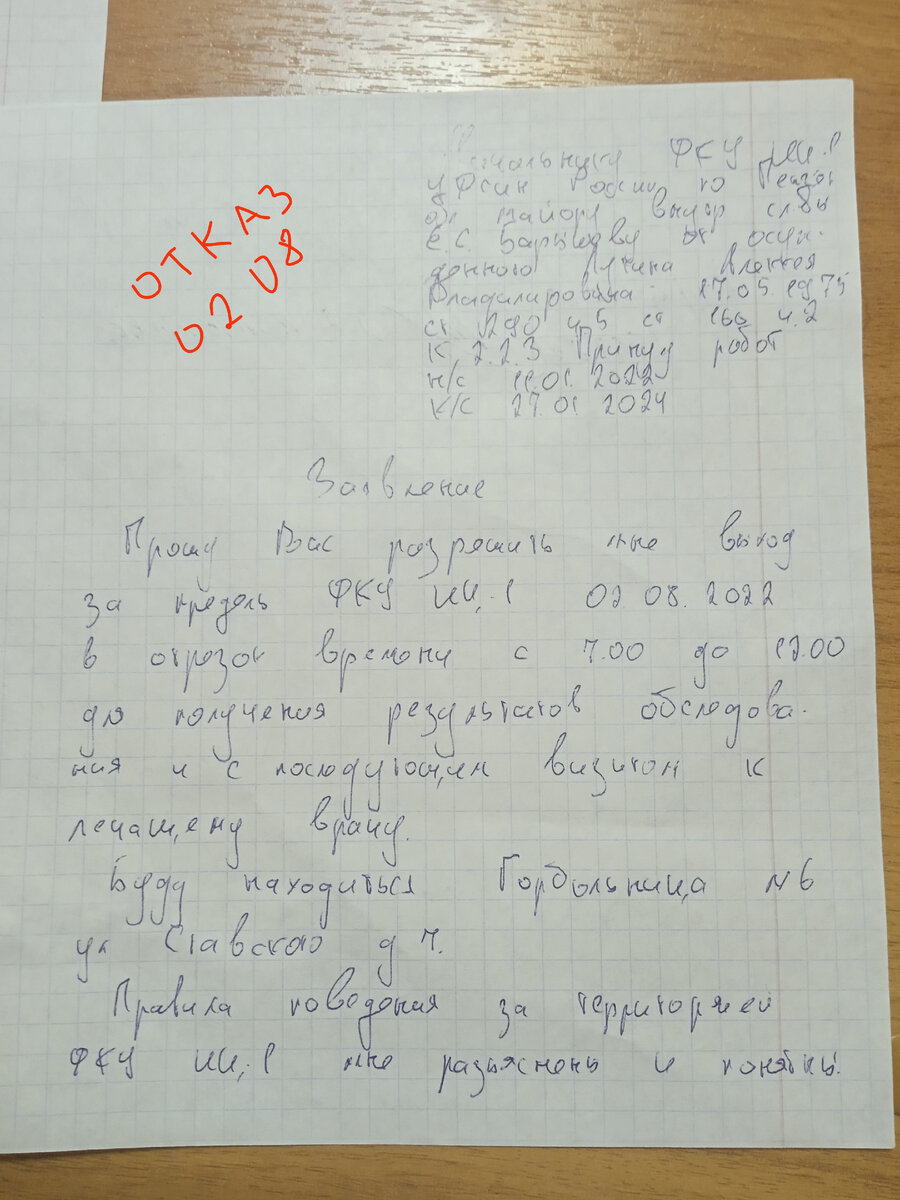 ОТКАЗ
02 08
Начальнику ФКУ ИЦ-1
УФСИН России по Пензен
обл майору внутр слбы
Е.С. Барышеву от осуж-
денного Лучина Алексея
Владимировича 27.05.1975
ст 290 ч.5 ст 160 ч.2
К 2.2.3 Принуд работ
н/с 11.01.2022
к/с 27.01 2024
Заявление
Прошу Вас разрешить мне выход
за предель ФКУ ИЦ-1 02 08. 2022
в отрезок времени с 7.00 до 17.00
для получения результатов обследова-
ния и с последующим визитом к
лечащему врачу.
Буду находиться Горбольница №6
ул Ставского д 7.
Правила поведения за территорией
ФКУ ИЦ-1 мне разьяснены и понятны.